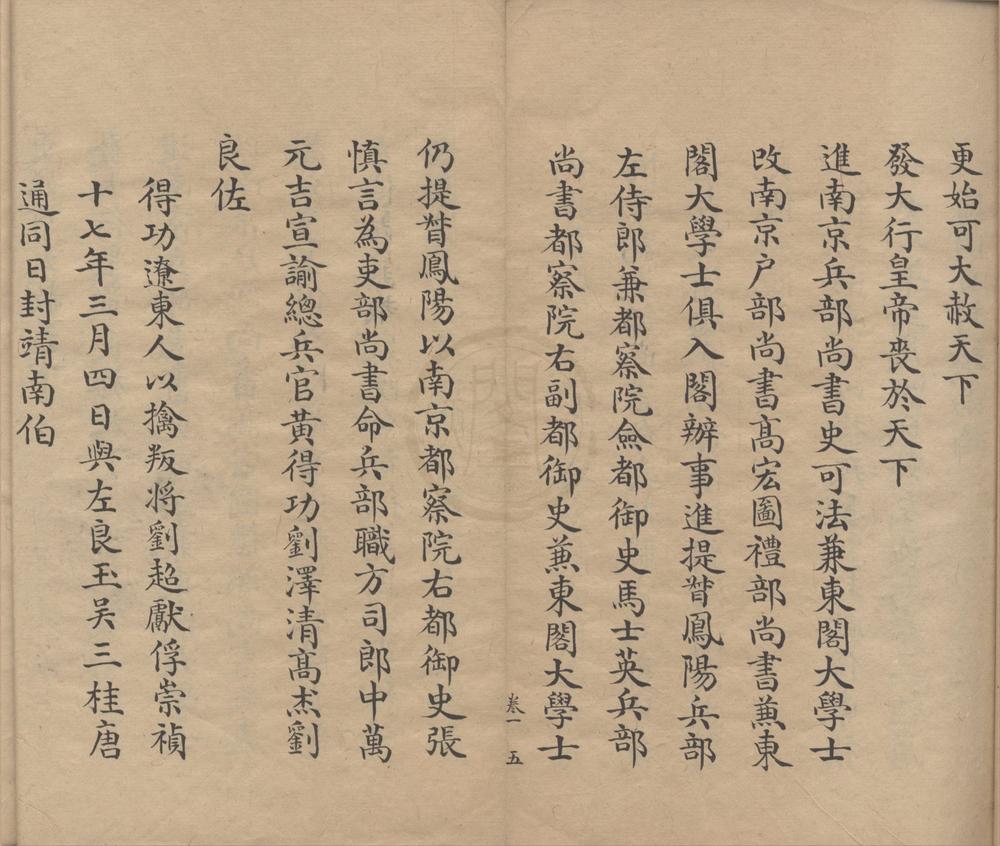 更始可大赦天下
發大行皇帝喪於天下
進南京兵部尚書史可法兼東閣大學士
改南京户部尚書高宏圖禮部尚書兼東
閣大學士俱入閣辦事進提督鳳陽兵部
左侍郎兼都察院僉都御史馬士英兵部
尚書都察院右副都御史兼東閣大學士
卷一 五
仍提督鳳陽以南京都察院右都御史張
慎言為吏部尚書命兵部職方司郎中萬
元吉宣諭總兵官黃得功劉澤清高杰劉
良佐
得功遼東人以擒叛将劉超獻俘崇禎
十七年三月四日與左良玉吴三桂唐
通同日封靖南伯